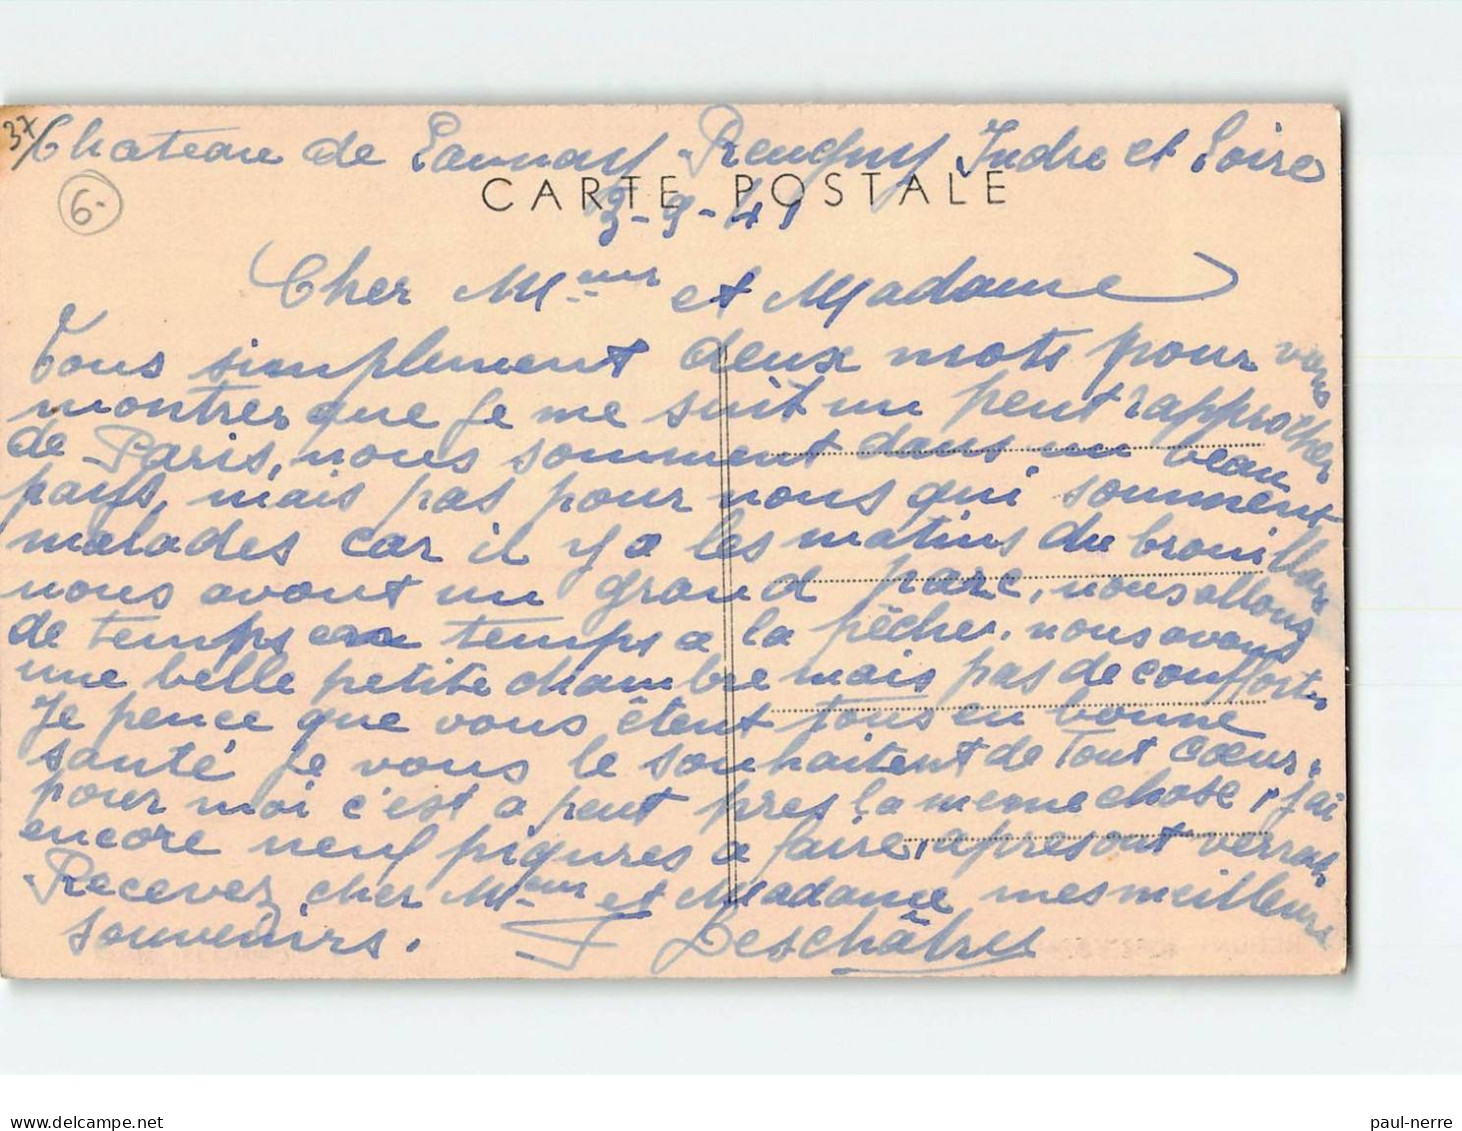 37
Chateau de Launay Reugny Indre et Loire
6-
CARTE POSTALE
3-9-41
Cher Mr et Madame
Tous simplement deux mots pour vous
montrer que je me suit un peut rapprocher
de Paris, nous somment dans un beau
pays, mais pas pour nous qui somment
malades car il y a les matins du brouillard
nous avont un grand parc, nous allons
de temps en temps a la pêcher. nous avons
une belle petite chambre mais pas de conffort.
Je pence que vous êtent tous en bonne
santé je vous le souhaitent de tout cœur,
pour moi c'est a peut pres la meme chose, j'ai
encore neuf piqures a faire, apres ont verrat.
Recevez cher Mr et Madame mes meilleurs
souvenirs. Deschâtres
paul-nerre